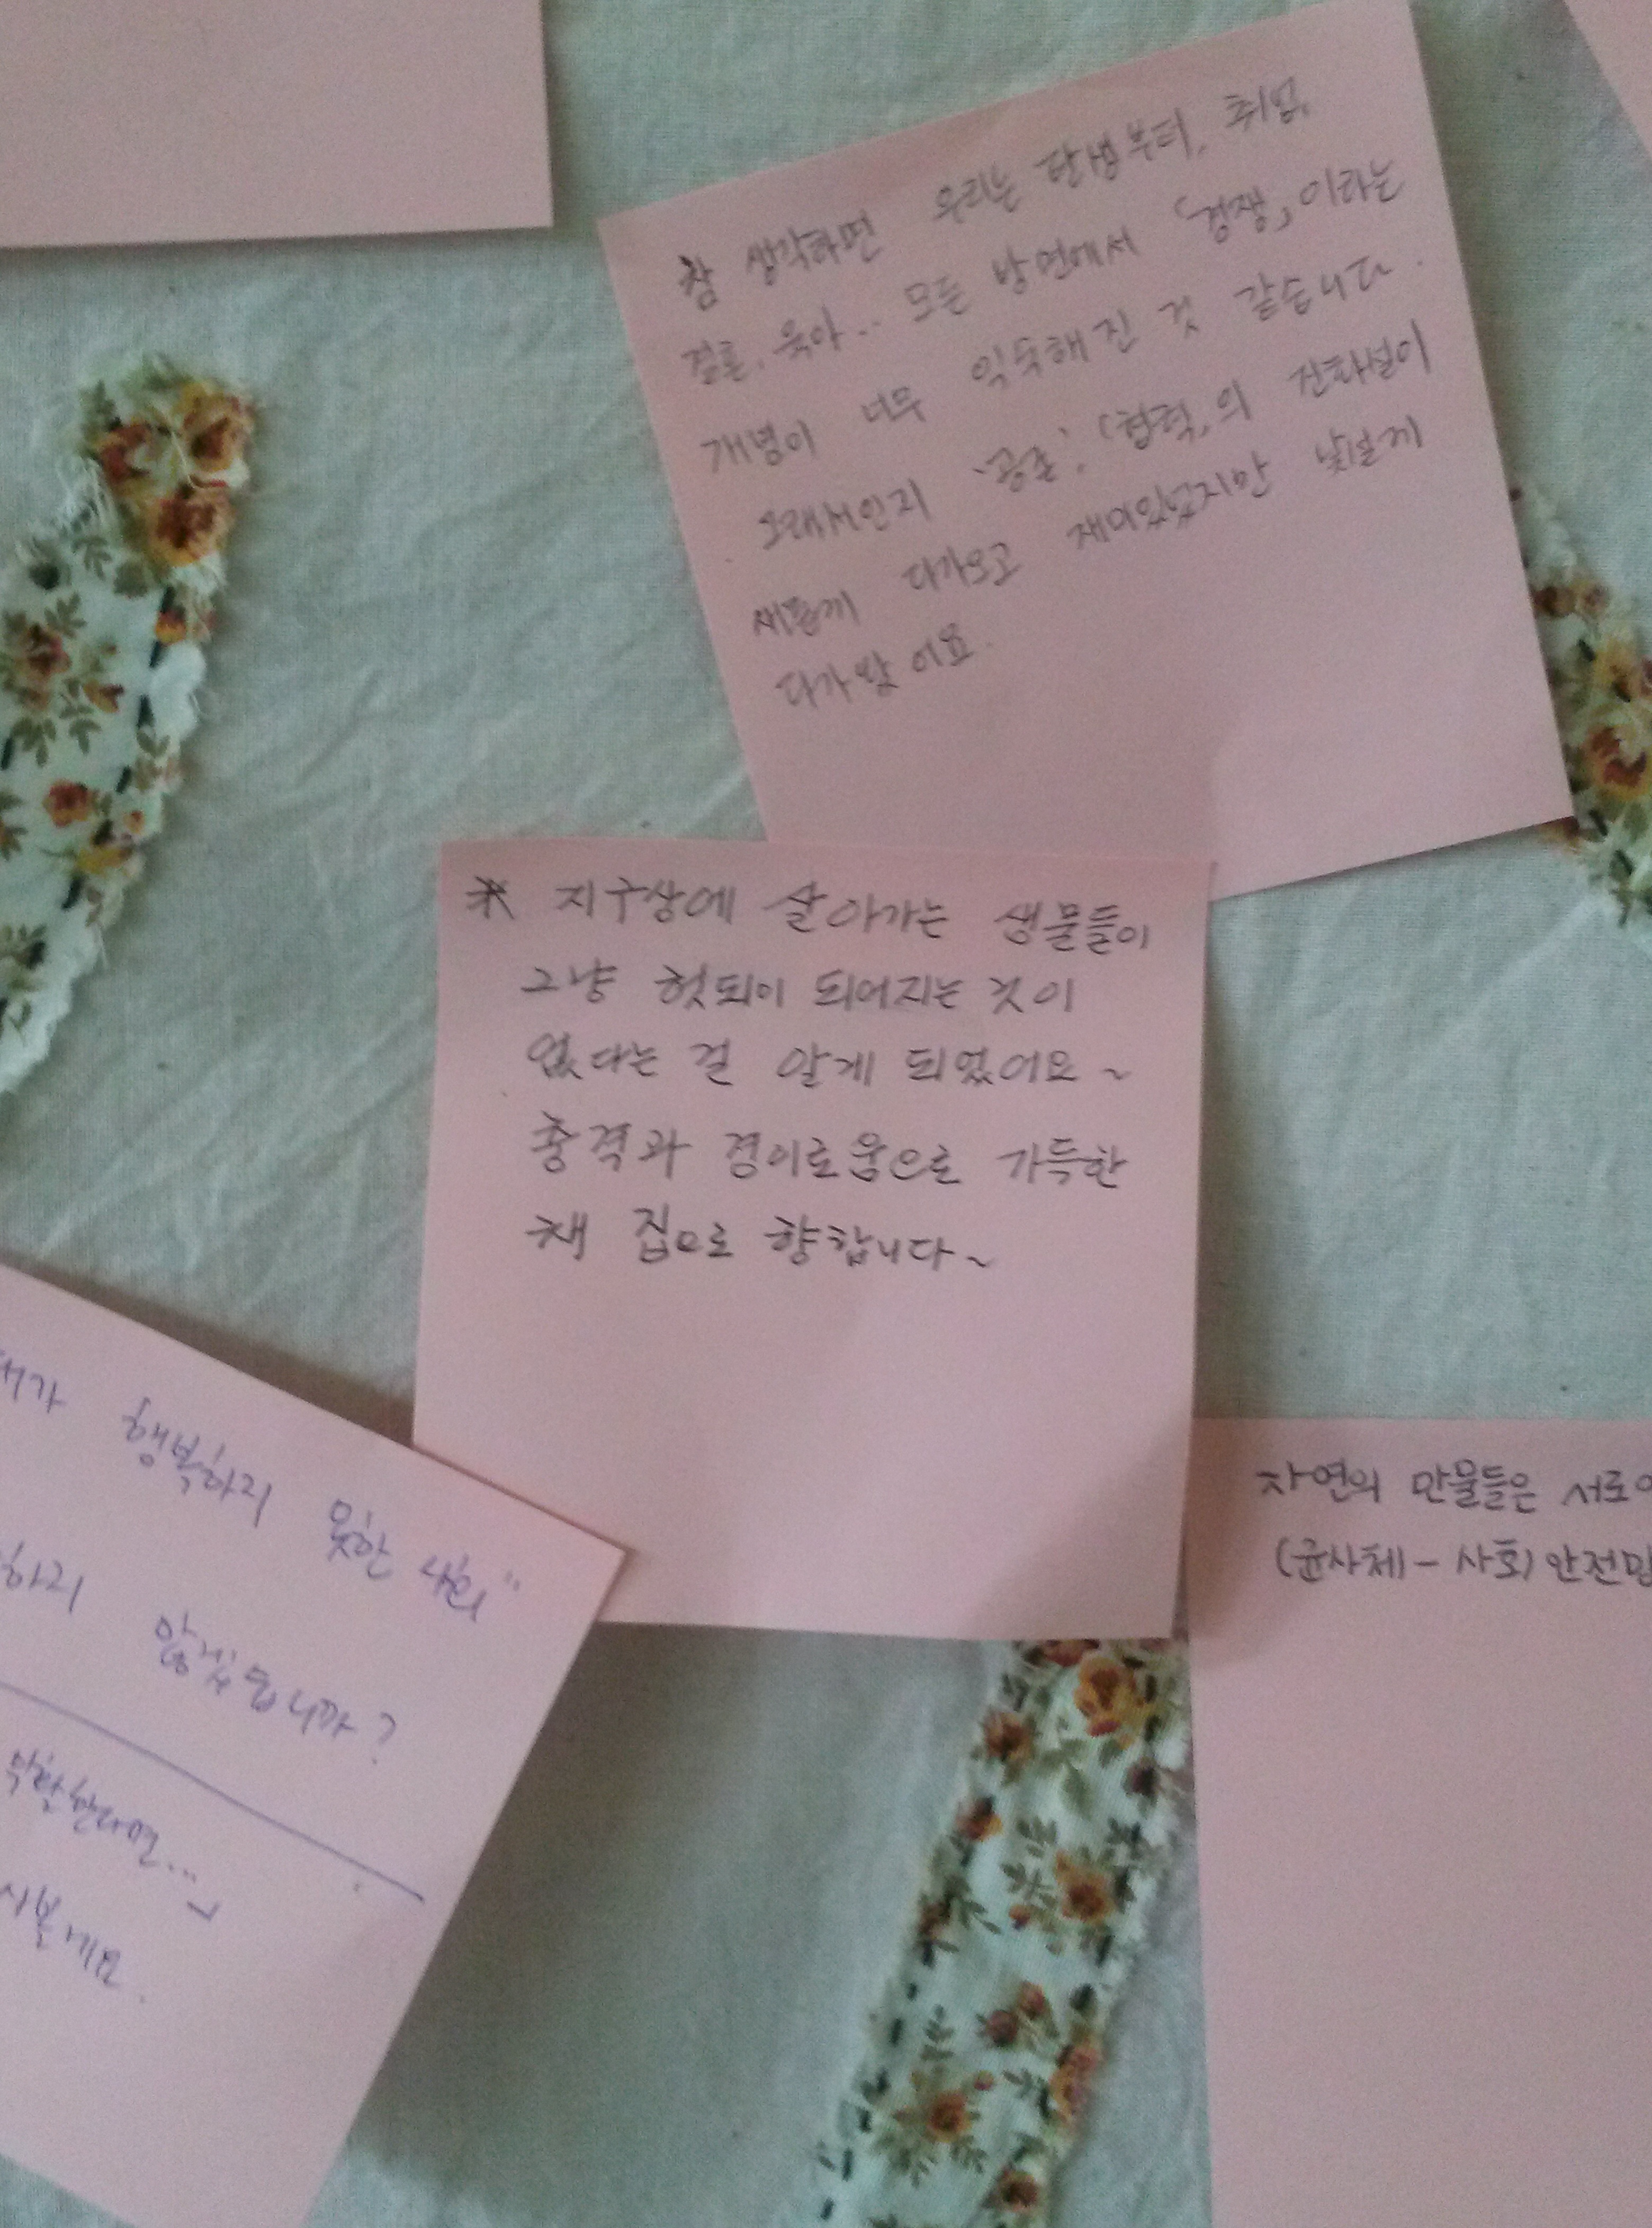 참 생각하면 우리는 탄생부터, 취업,
결혼, 육아.. 모든 방면에서 「경쟁」이라는
개념이 너무 익숙해진 것 같습니다.
그래서인지 '공존', 「협력」의 진화설이
새롭게 다가오고 재미있었지만 낯설게
다가왔어요.
※ 지구상에 살아가는 생물들이
그냥 헛되이 되어지는 것이
없다는 걸 알게 되었어요~
충격과 경이로움으로 가득한
채 집으로 향합니다~
행복하지 못한
하지 않겠습니까?
자연의 만물들은 서로
(균사체 - 사회) 안전망